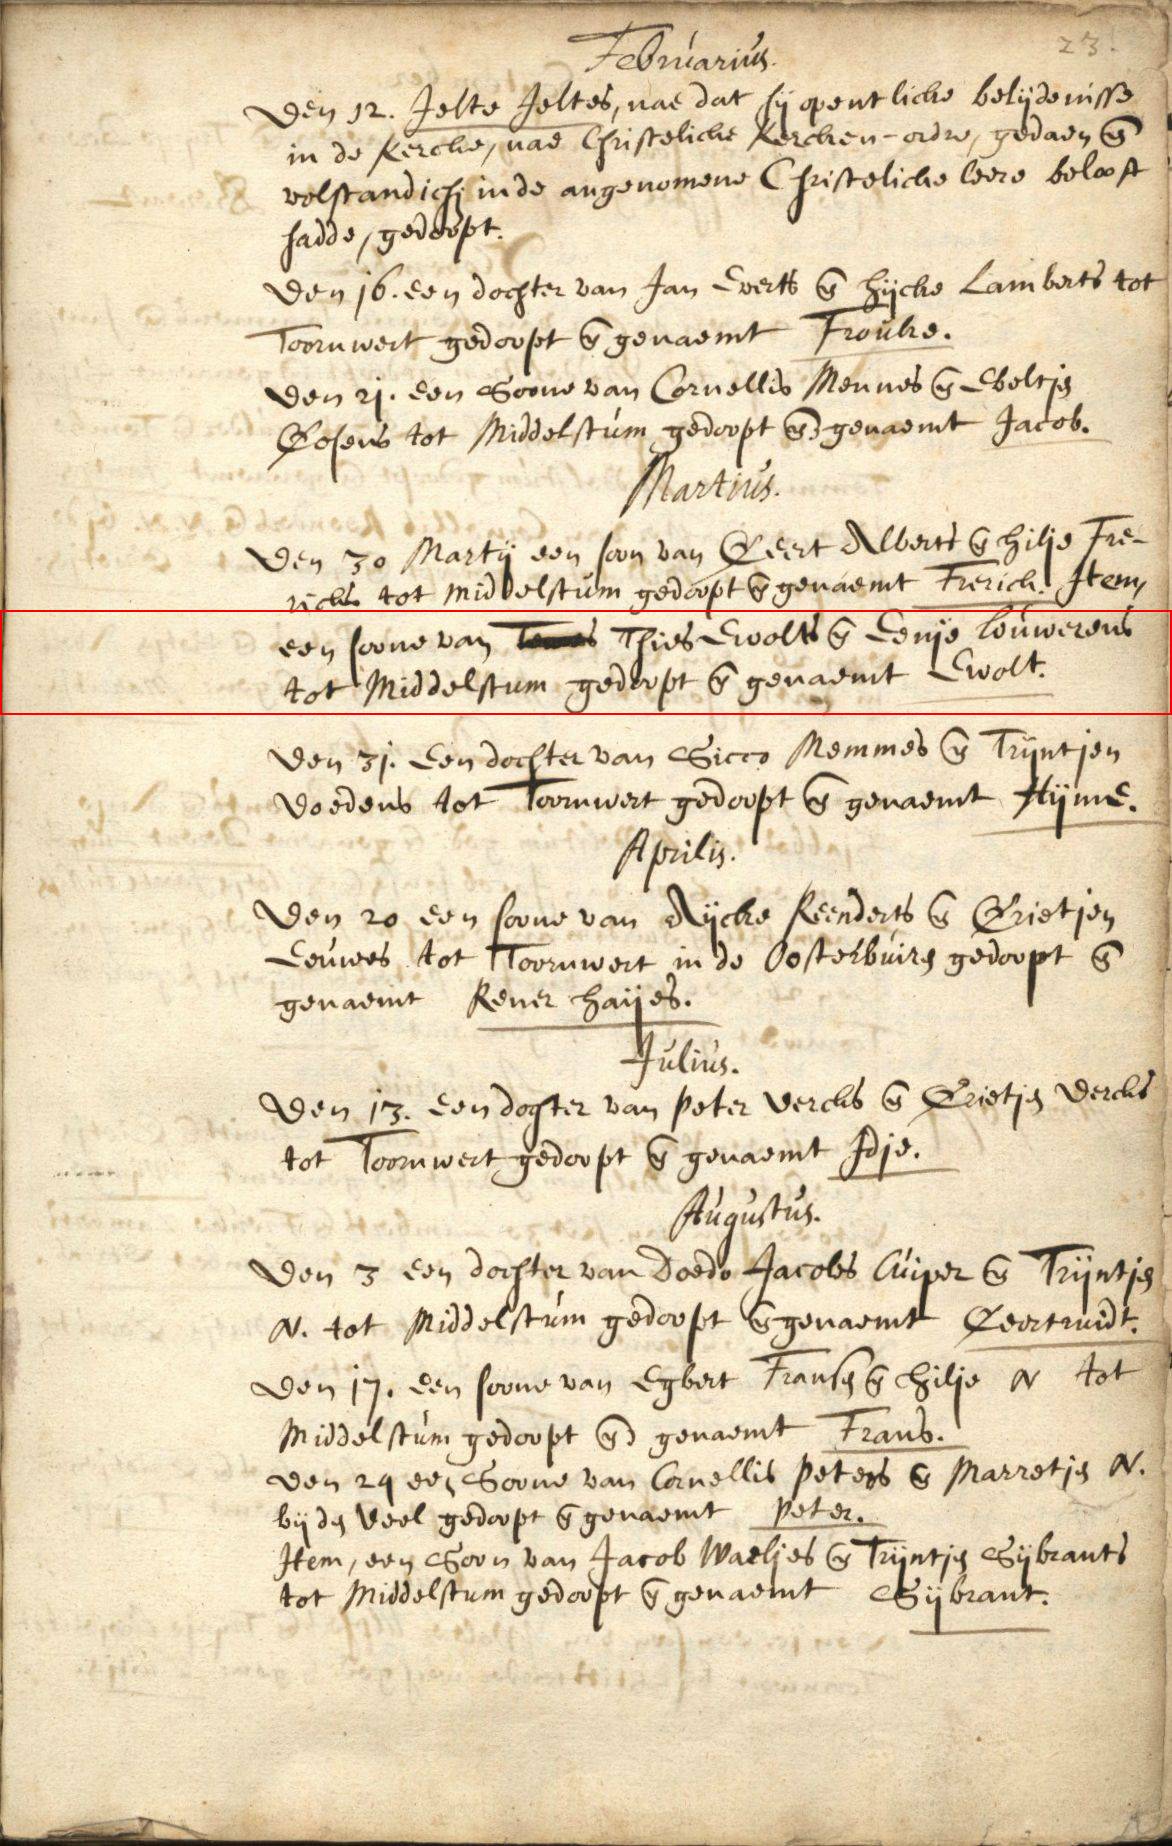 23.
Februarius.
Den 12. Jelte Jeltes, nae dat hij opentlicke belijdenisse
in de Kercke, nae Christelicke Kercken-ordre, gedaen en
volstandich in de angenomene Christelicke leere belooft
hadde, gedoopt.
Den 16. een dochter van Jan Everts en Hijcke Lamberts tot
Toornwert gedoopt en genaemt Frouke.
Den 21. een Soone van Cornellis Mennes en Ebeltje
Gosens tot Middelstum gedoopt end genaemt Jacob.
Martius.
Den 30 Martij een soon van Geert Alberts en Hilje Fre-
richs tot Middelstum gedoopt en genaemt Frerich. Item,
een soone van Thies Ewolts en Eenje Louwerens
tot Middelstum gedoopt en genaemt Ewolt.
Den 31. Een dochter van Sicco Memmes en Trijntjen
Doedens tot Toornwert gedoopt en genaemt Hijme.
Aprilis.
Den 20 een soone van Aijcke Reenderts en Grietjen
Leuwes tot Toornwert in de Oosterbuire gedoopt en
genaemt Rener Haijes.
Julius.
Den 13. Een dochter van Peter Dercks en Grietje Dercks
tot Toornwert gedoopt en genaemt Idje.
Augustus.
Den 3 een dochter van Doedo Jacobs Cuiper en Trijntje
N. tot Middelstum gedoopt en genaemt Geertruidt.
Den 17. een soone van Egbert Franse en Hilje N tot
Middelstum gedoopt end genaemt Frans.
Den 24 een Soone van Cornellis Peters en Marretje N.
bij de Veel gedoopt en genaemt Peter.
Item, een Soon van Jacob Waeljes en Trijntje Sijbrants
tot Middelstum gedoopt en genaemt Sijbrant.